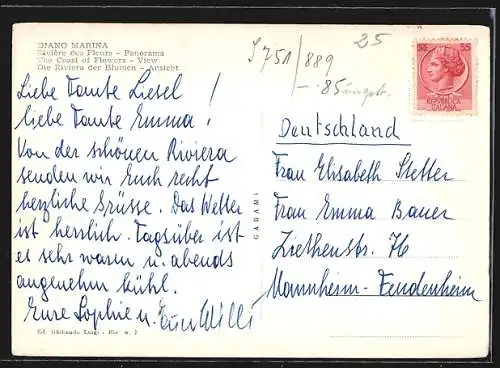 DIANO MARINA
Rivière des Fleurs - Panorama
The Coast of Flowers - View
Die Riviera der Blumen - Ansicht
Liebe Tante Liesel!
liebe Tante Emma!
Von der schönen Riviera
senden wir Euch recht
herzliche Grüsse. Das Wetter
ist herrlich. Tagsüber ist
es sehr warm u. abends
angenehm kühl.
Eure Sophie u. Euer Willi
Luigi
GARAMI
J 751/889
-.85
25
55
REPUBBLICA
ITALIANA
Deutschland
Frau Elisabeth Stetter
Frau Emma Bauer
Ziethenstr. 76
Mannheim-Feudenheim